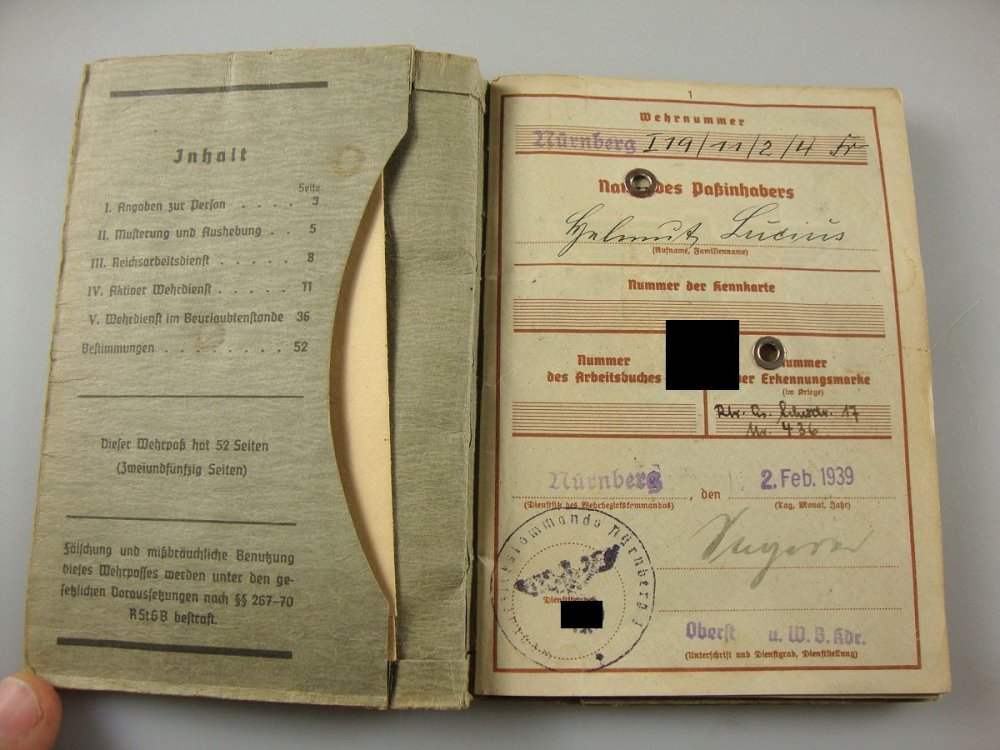 Inhalt
Seite
I. Angaben zur Person . . . . . 3
II. Musterung und Aushebung . . 5
III. Reichsarbeitsdienst . . . . . . 8
IV. Aktiver Wehrdienst . . . . . . 11
V. Wehrdienst im Beurlaubtenstande 36
Bestimmungen . . . . . . . . 52
Dieser Wehrpaß hat 52 Seiten
(Zweiundfünfzig Seiten)
Fälschung und mißbräuchliche Benutzung
dieses Wehrpasses werden unter den ge-
setzlichen Voraussetzungen nach §§ 267-70
RStGB bestraft.
1
Wehrnummer
Nürnberg I 19/11/2/4 Fr
des Paßinhabers
Helmut Lucius
(Rufname, Familienname)
Nummer der Kennkarte
Nummer
des Arbeitsbuches
Nummer
der Erkennungsmarke
(im Kriege)
17
Nr. 436
Nürnberg, den 2. Feb. 1939
(Dienstsitz des Wehrbezirkskommandos)
(Tag, Monat, Jahr)
kommando Nürnberg I
Oberst u. W. B. Kdr.
(Unterschrift und Dienstgrad, Dienststellung)